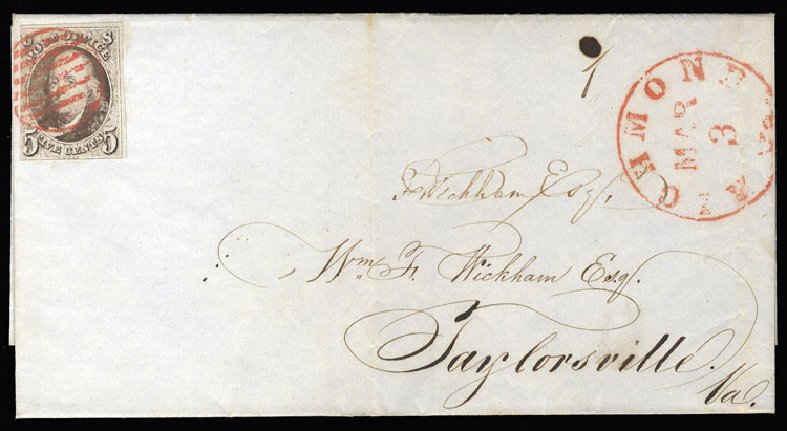 POST OFFICE
5 FIVE CENTS 5
RICHMOND Va.
MAR
3
Wickham Esqr.
Wm. F. Wickham Esqr.
Taylorsville.
Va.